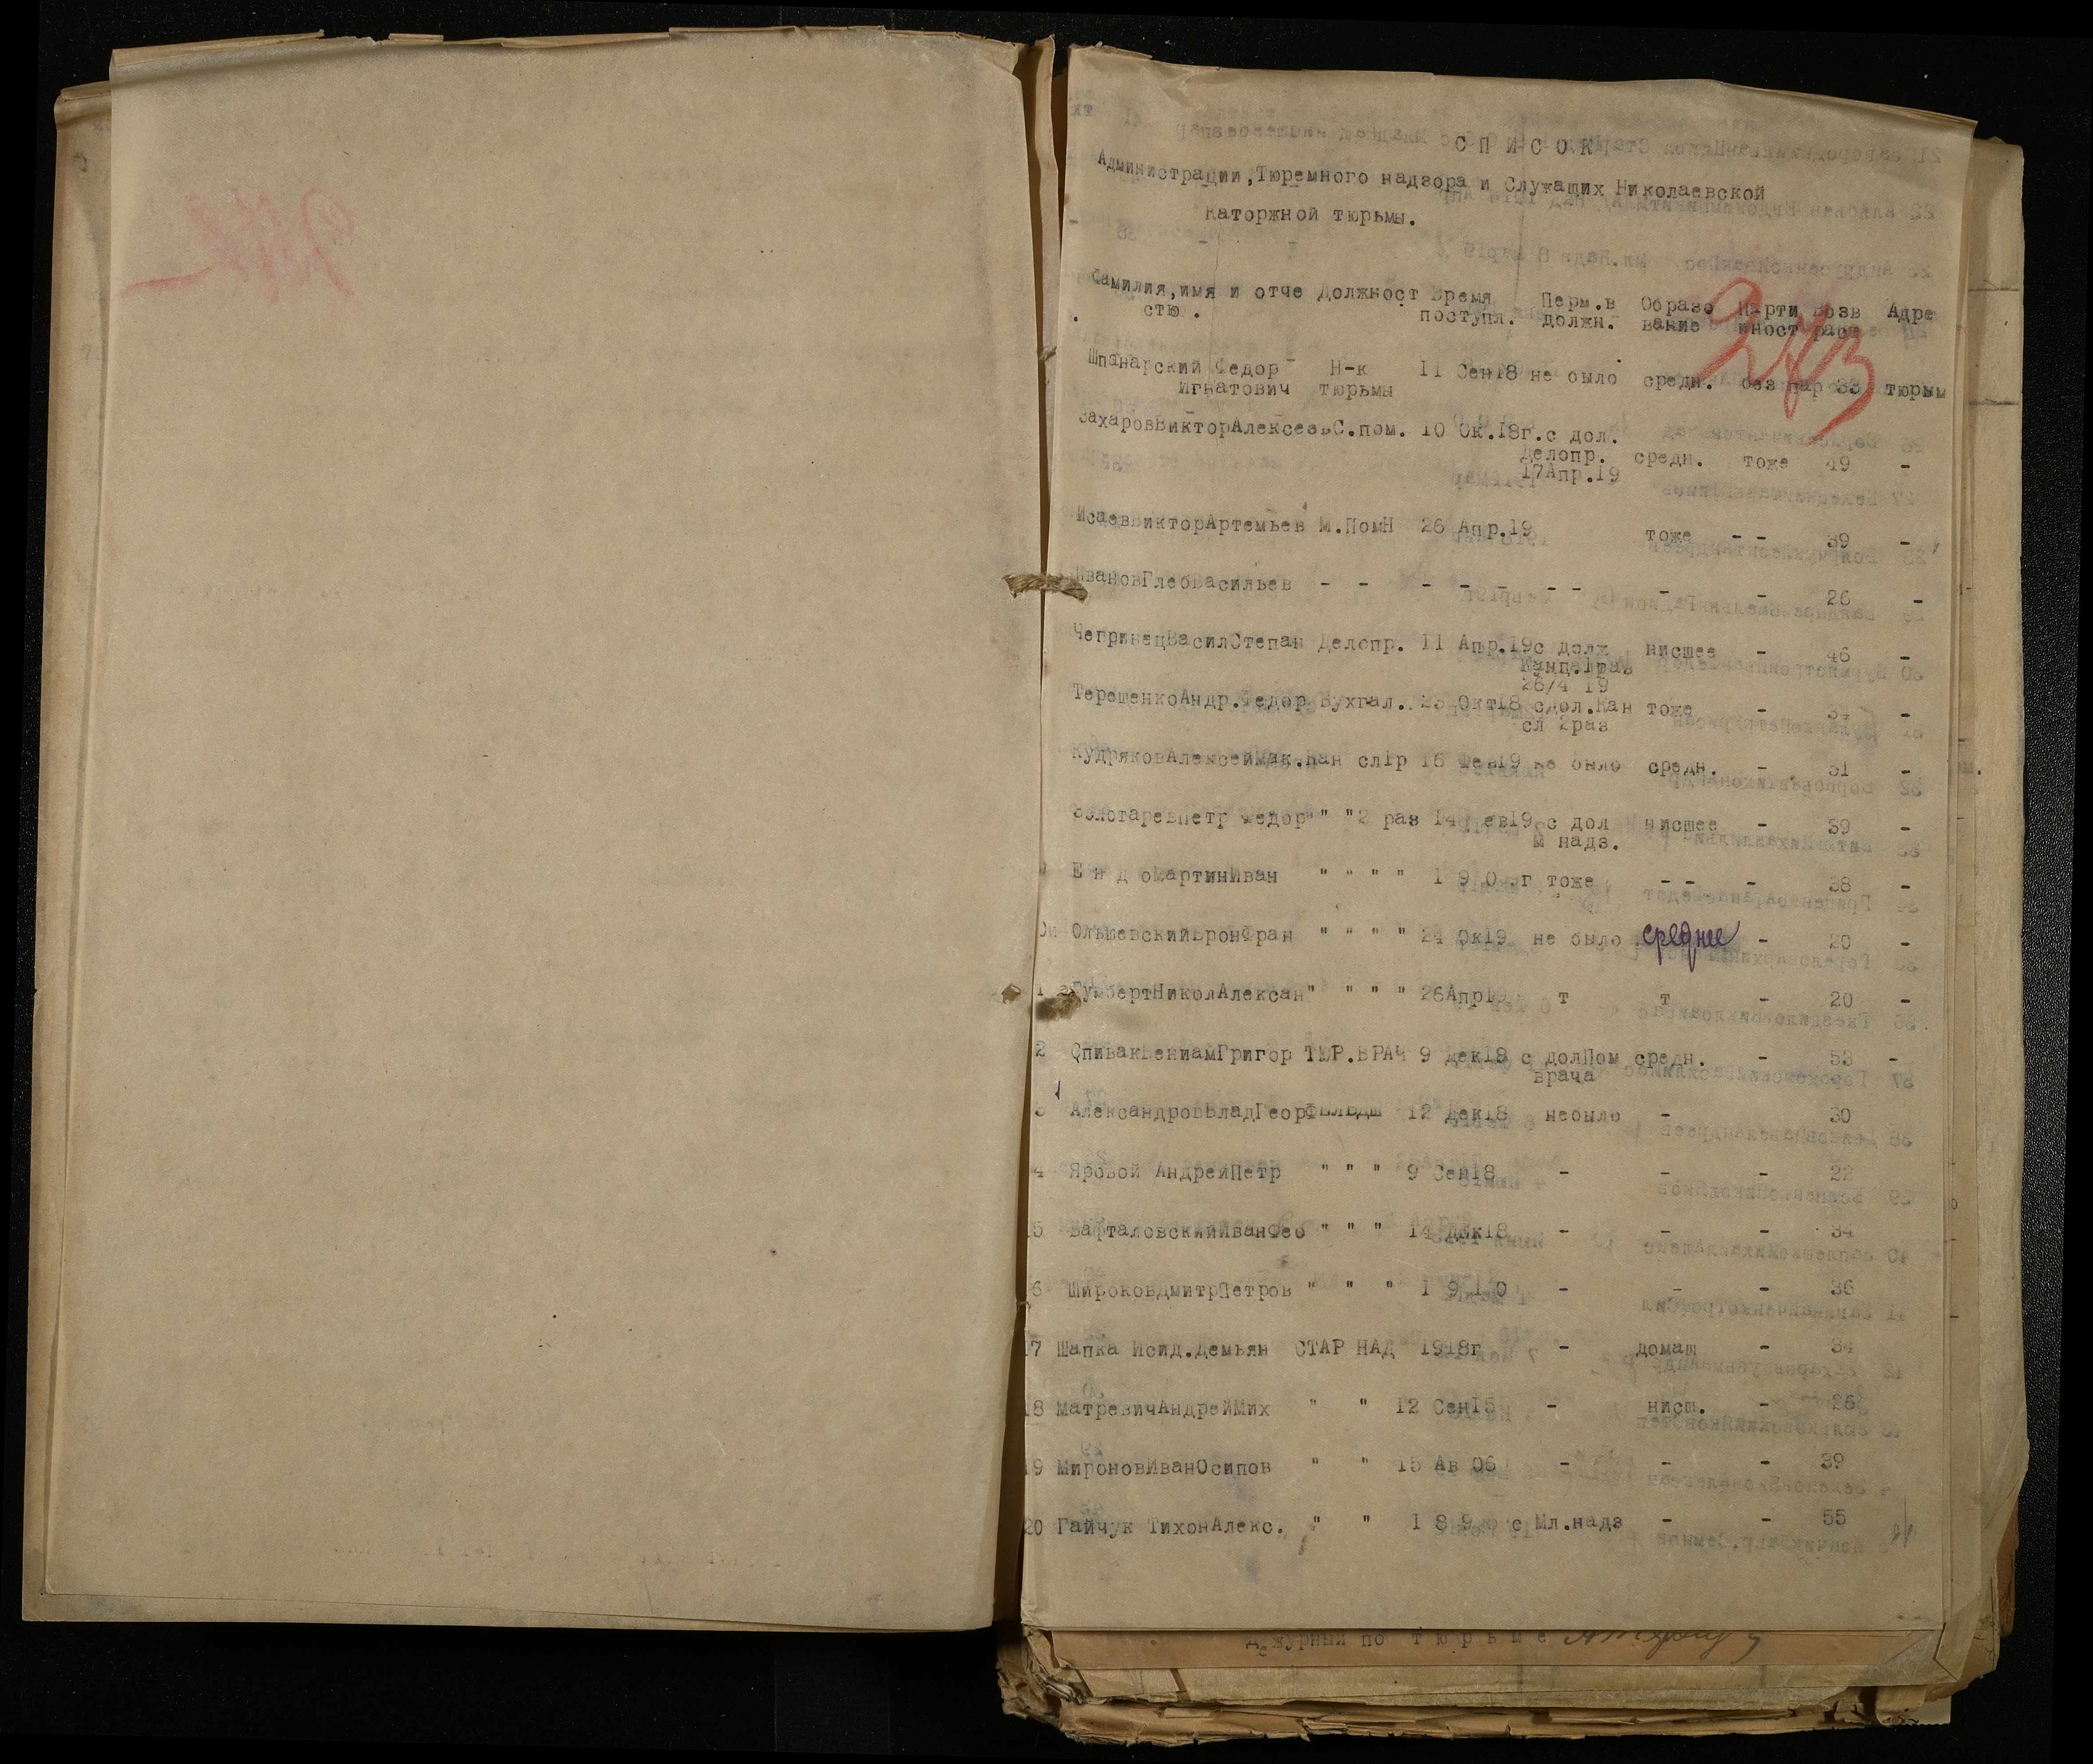 С П И С О К
Администрации,Тюремного надзора и Служащих Николаевской
Каторжной тюрьмы.
243
Фамилия,имя и отче Должност Время Перм.в Образо Парти Возв Адре
ство. поступл. должн. вание иност раст
Шпанарский Федор Н-к 11 Сен18 не было средн. без пар 33 тюрьм
Игнатович тюрьмы
ЗахаровВикторАлексеевС.пом. 10 Ок.18г.с дол.
Делопр. средн. тоже 49 -
17Апр.19
ИсаевВикторАртемьев М.ПомН 26 Апр.19 тоже - - 39 -
ИвановГлебВасильев - - - - - - - - - 26 -
ЧепринецВасилСтепан Делопр. 11 Апр.19с долж нисшее - 46 -
Канц.1раз
26/4 19
ТерещенкоАндр.Федор Бухгал. 23 Окт18 сдол.Кан тоже - -
сл 2раз
КудряковАлексейМак.Кан сл1р 16 Фев19 не было средн. - 31 -
ЗолотаревПетр Федор" "2 раз 14 Фев19 с дол нисшее - 39 -
М надз.
Е н д оМартинИван " " " " 1 9 0 г тоже - - - 38 -
ОльшевскийБронФран " " " " 24 Ок19 не было среднее - 20 -
1 ГумбертНиколАлексан" " " " 26Апр19 т т - 20 -
2 СпивакВениамГригор ТЮР.ВРАЧ 9 Дек18 с долПом средн. - 53 -
врача
3 АлександровВладГеорФЕЛЬДШ 12 Дек18 небыло - 30
4 Яровой АндрейПетр " " " 9 Сен18 - - - 22
5 ВафталовскийИванФео " " " 14 Дек18 - - - 34
6 ШироковДмитрПетров " " " 1 9 1 0 - - - 36
17 Шапка Исид.Демьян СТАР НАД 1918г - домаш - 34
18 МатревичАндрейМих " " 12 Сен15 - нисш. - 26
19 МироновИванОсипов " " 15 Ав 06 - - - 39
20 Гайчук ТихонАлекс. " " 1 8 9 с Мл.надз - - 55
Дежурный по т ю р ь м е